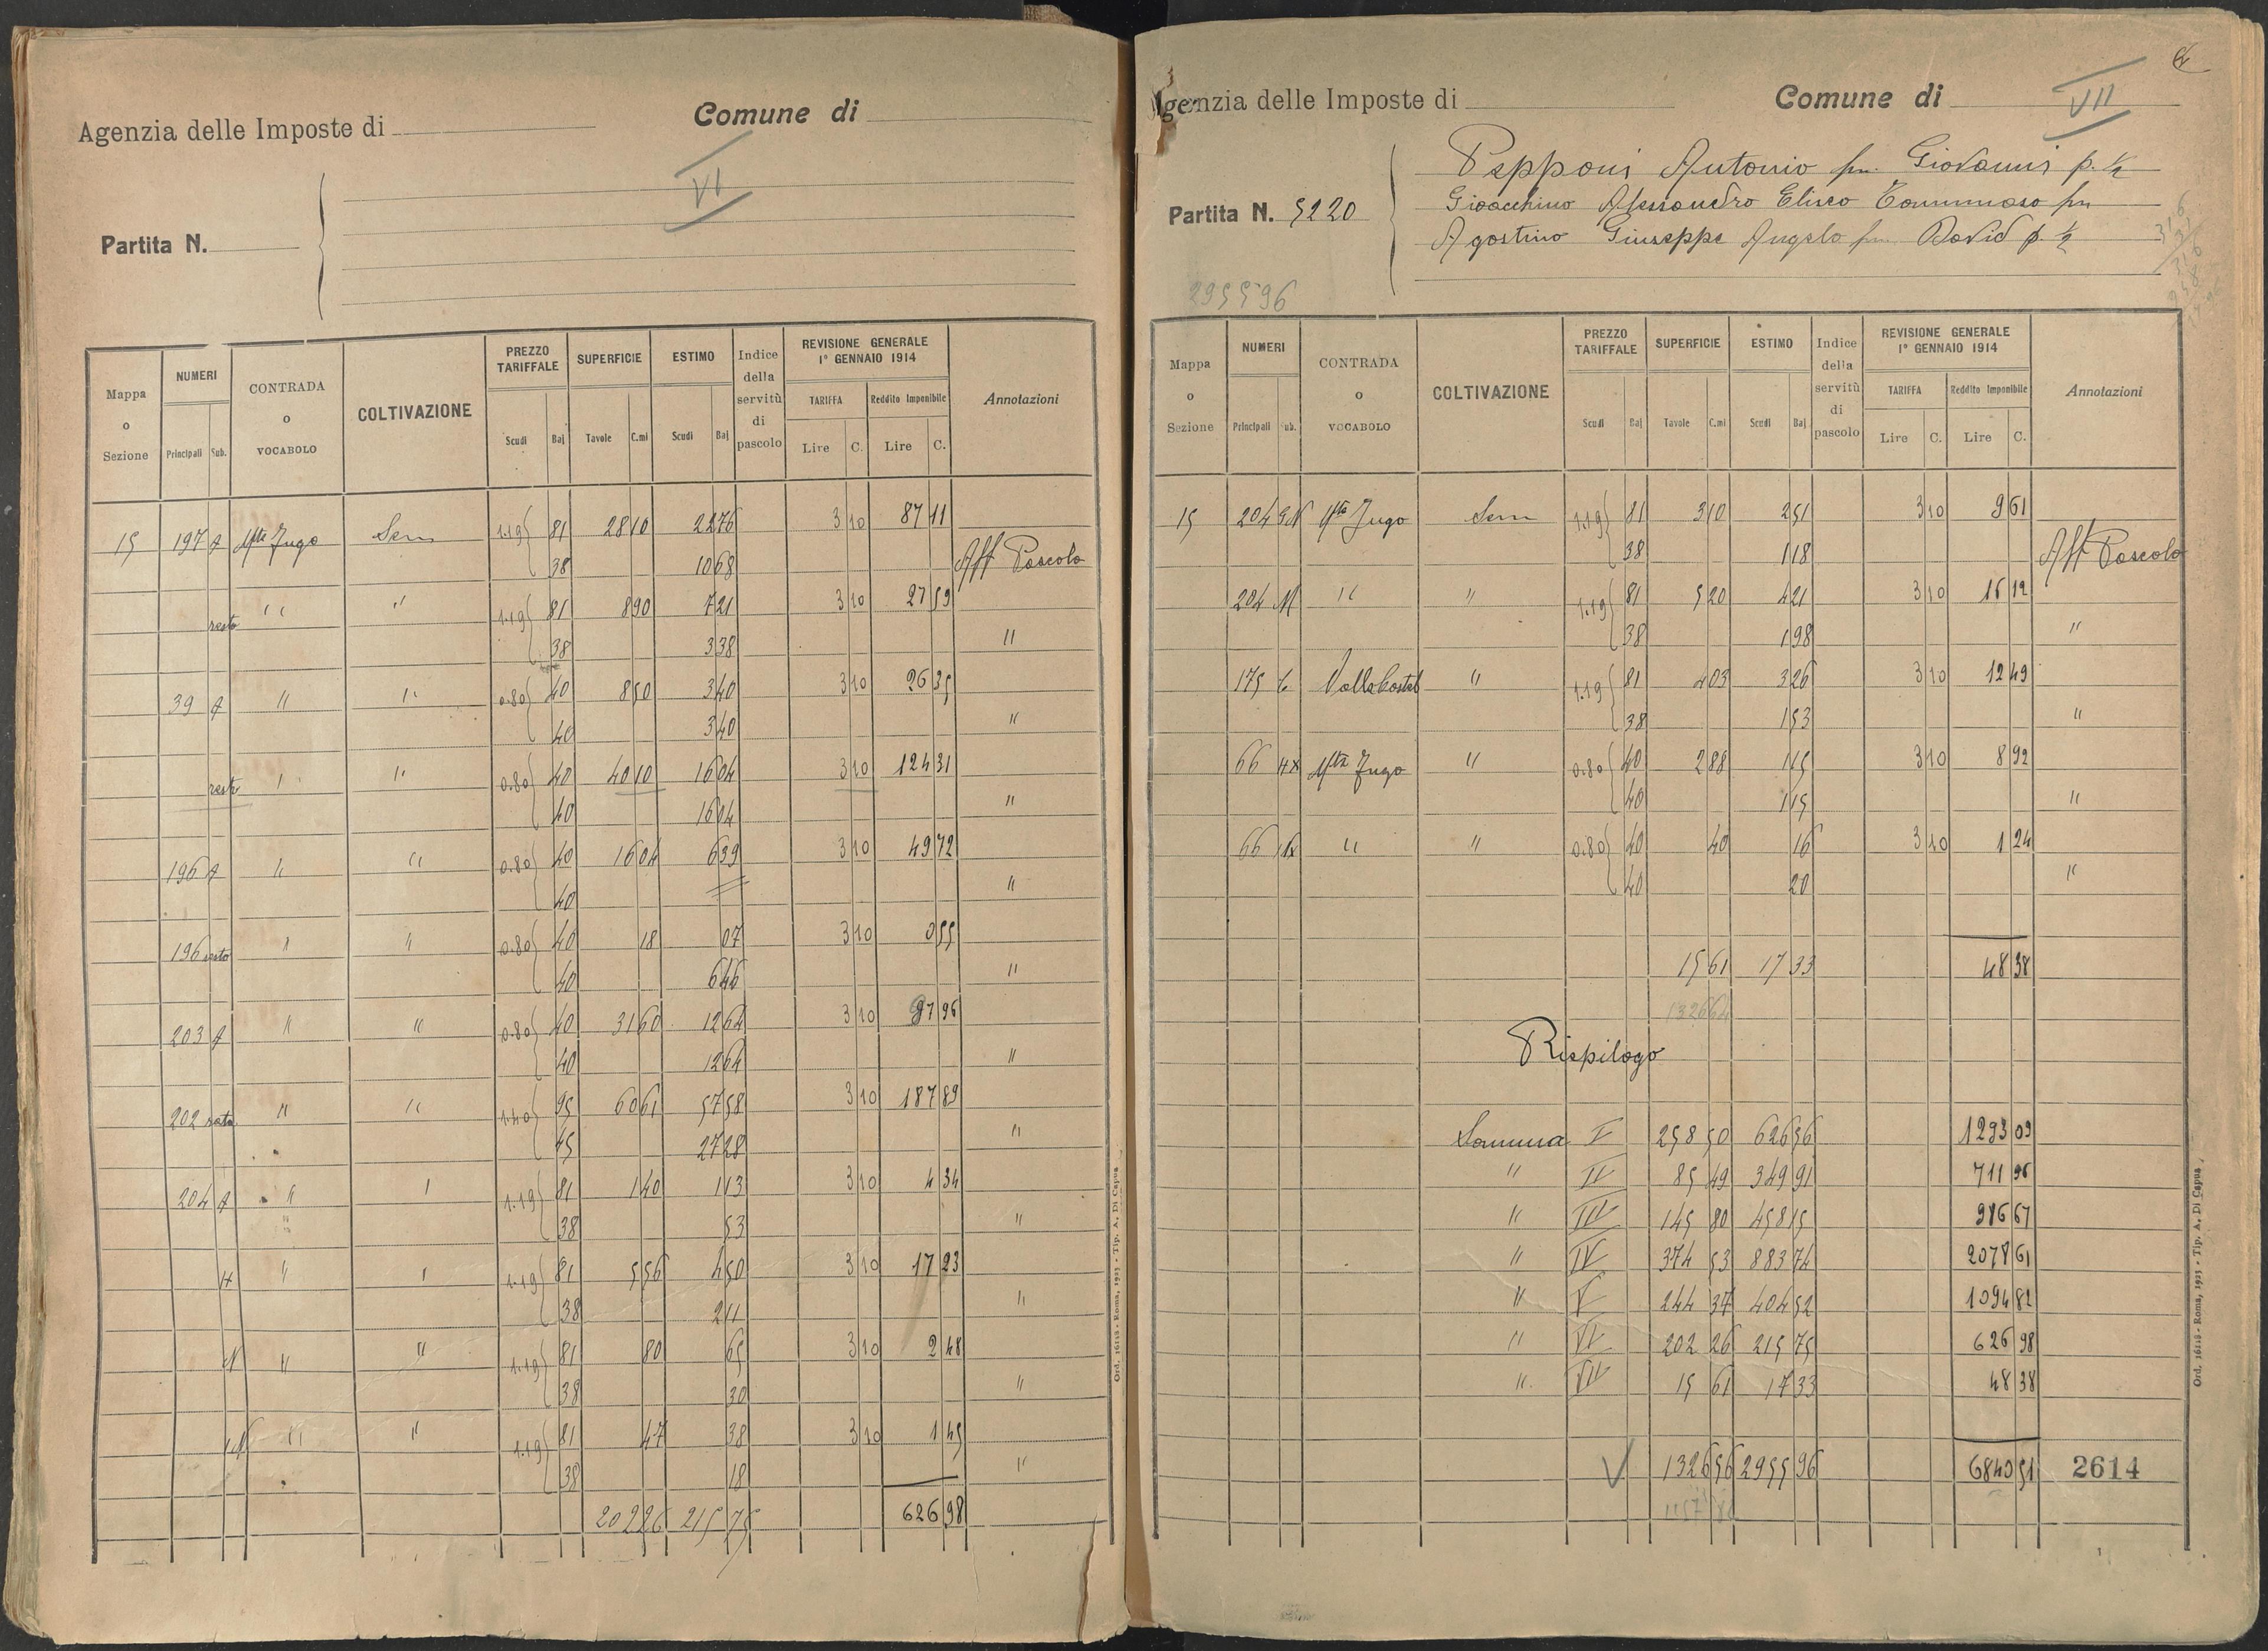 Agenzia delle Imposte di
Comune di
VI
Partita N.
Mappa o Sezione | NUMERI Principali Sub. | CONTRADA o VOCABOLO | COLTIVAZIONE | PREZZO TARIFFALE Scudi Baj | SUPERFICIE Tavole C.mi | ESTIMO Scudi Baj | Indice della servitù di pascolo | REVISIONE GENERALE 1° GENNAIO 1914 TARIFFA Lire C. Reddito Imponibile Lire C. | Annotazioni
15 197 A Mte Jugo Sem 1.19 81 28 10 22 76 3 10 87 11
38 10 68 Aff Pascolo
resto " " 1.19 81 8 90 7 21 3 10 27 59
38 3 38 "
39 A " " 0.80 40 8 50 3 40 3 10 26 35
40 3 40 "
resto " " 0.80 40 40 10 16 04 3 10 124 31
40 16 04 "
196 A " " 0.80 40 16 04 6 39 3 10 49 72
40 "
196 resto " " 0.80 40 18 07 3 10 0 55
40 6 46 "
203 A " " 0.80 40 31 60 12 64 3 10 97 96
40 12 64 "
202 rata " " 1.40 95 60 61 57 58 3 10 187 89
45 27 28 "
204 A " " 1.19 81 1 40 1 13 3 10 4 34
38 53 "
" " 1.19 81 5 56 4 50 3 10 17 23
38 2 11 "
" " 1.19 81 80 65 3 10 2 48
38 30 "
" " 1.19 81 47 38 3 10 1 45
38 18 "
202 26 215 75 626 98
Ord. 16118 - Roma, 1923 - Tip. A. Di Capua
Agenzia delle Imposte di
Comune di
VII
Partita N. 5220
Pepponi Antonio fu Giovanni p. 1/2
Gioacchino Alessandro Eliseo Tommaso fu
Agostino Giuseppe Angelo fu David p. 1/2
2955 96
Mappa o Sezione | NUMERI Principali Sub. | CONTRADA o VOCABOLO | COLTIVAZIONE | PREZZO TARIFFALE Scudi Baj | SUPERFICIE Tavole C.mi | ESTIMO Scudi Baj | Indice della servitù di pascolo | REVISIONE GENERALE 1° GENNAIO 1914 TARIFFA Lire C. Reddito Imponibile Lire C. | Annotazioni
15 204 Mte Jugo Sem 1.19 81 3 10 2 51 3 10 9 61
38 1 18 Aff Pascolo
204 M " " 1.19 81 5 20 4 21 3 10 16 12
38 1 98 "
175 " 1.19 81 4 03 3 26 3 10 12 49
38 1 53 "
66 Mte Jugo " 0.80 40 2 88 1 15 3 10 8 92
40 1 15 "
66 " " 0.80 40 40 16 3 10 1 24
40 20 "
15 61 17 33 48 38
1326 64
Rispilogo
Somma I 258 50 626 56 1293 09
" II 85 49 349 91 711 96
" III 145 80 458 15 986 67
" IV 374 53 883 74 2078 61
" V 244 37 404 52 1094 82
" VI 202 26 215 75 626 98
" VII 15 61 17 33 48 38
1326 56 2955 96 6840 51 2614
Ord. 16118 - Roma, 1923 - Tip. A. Di Capua